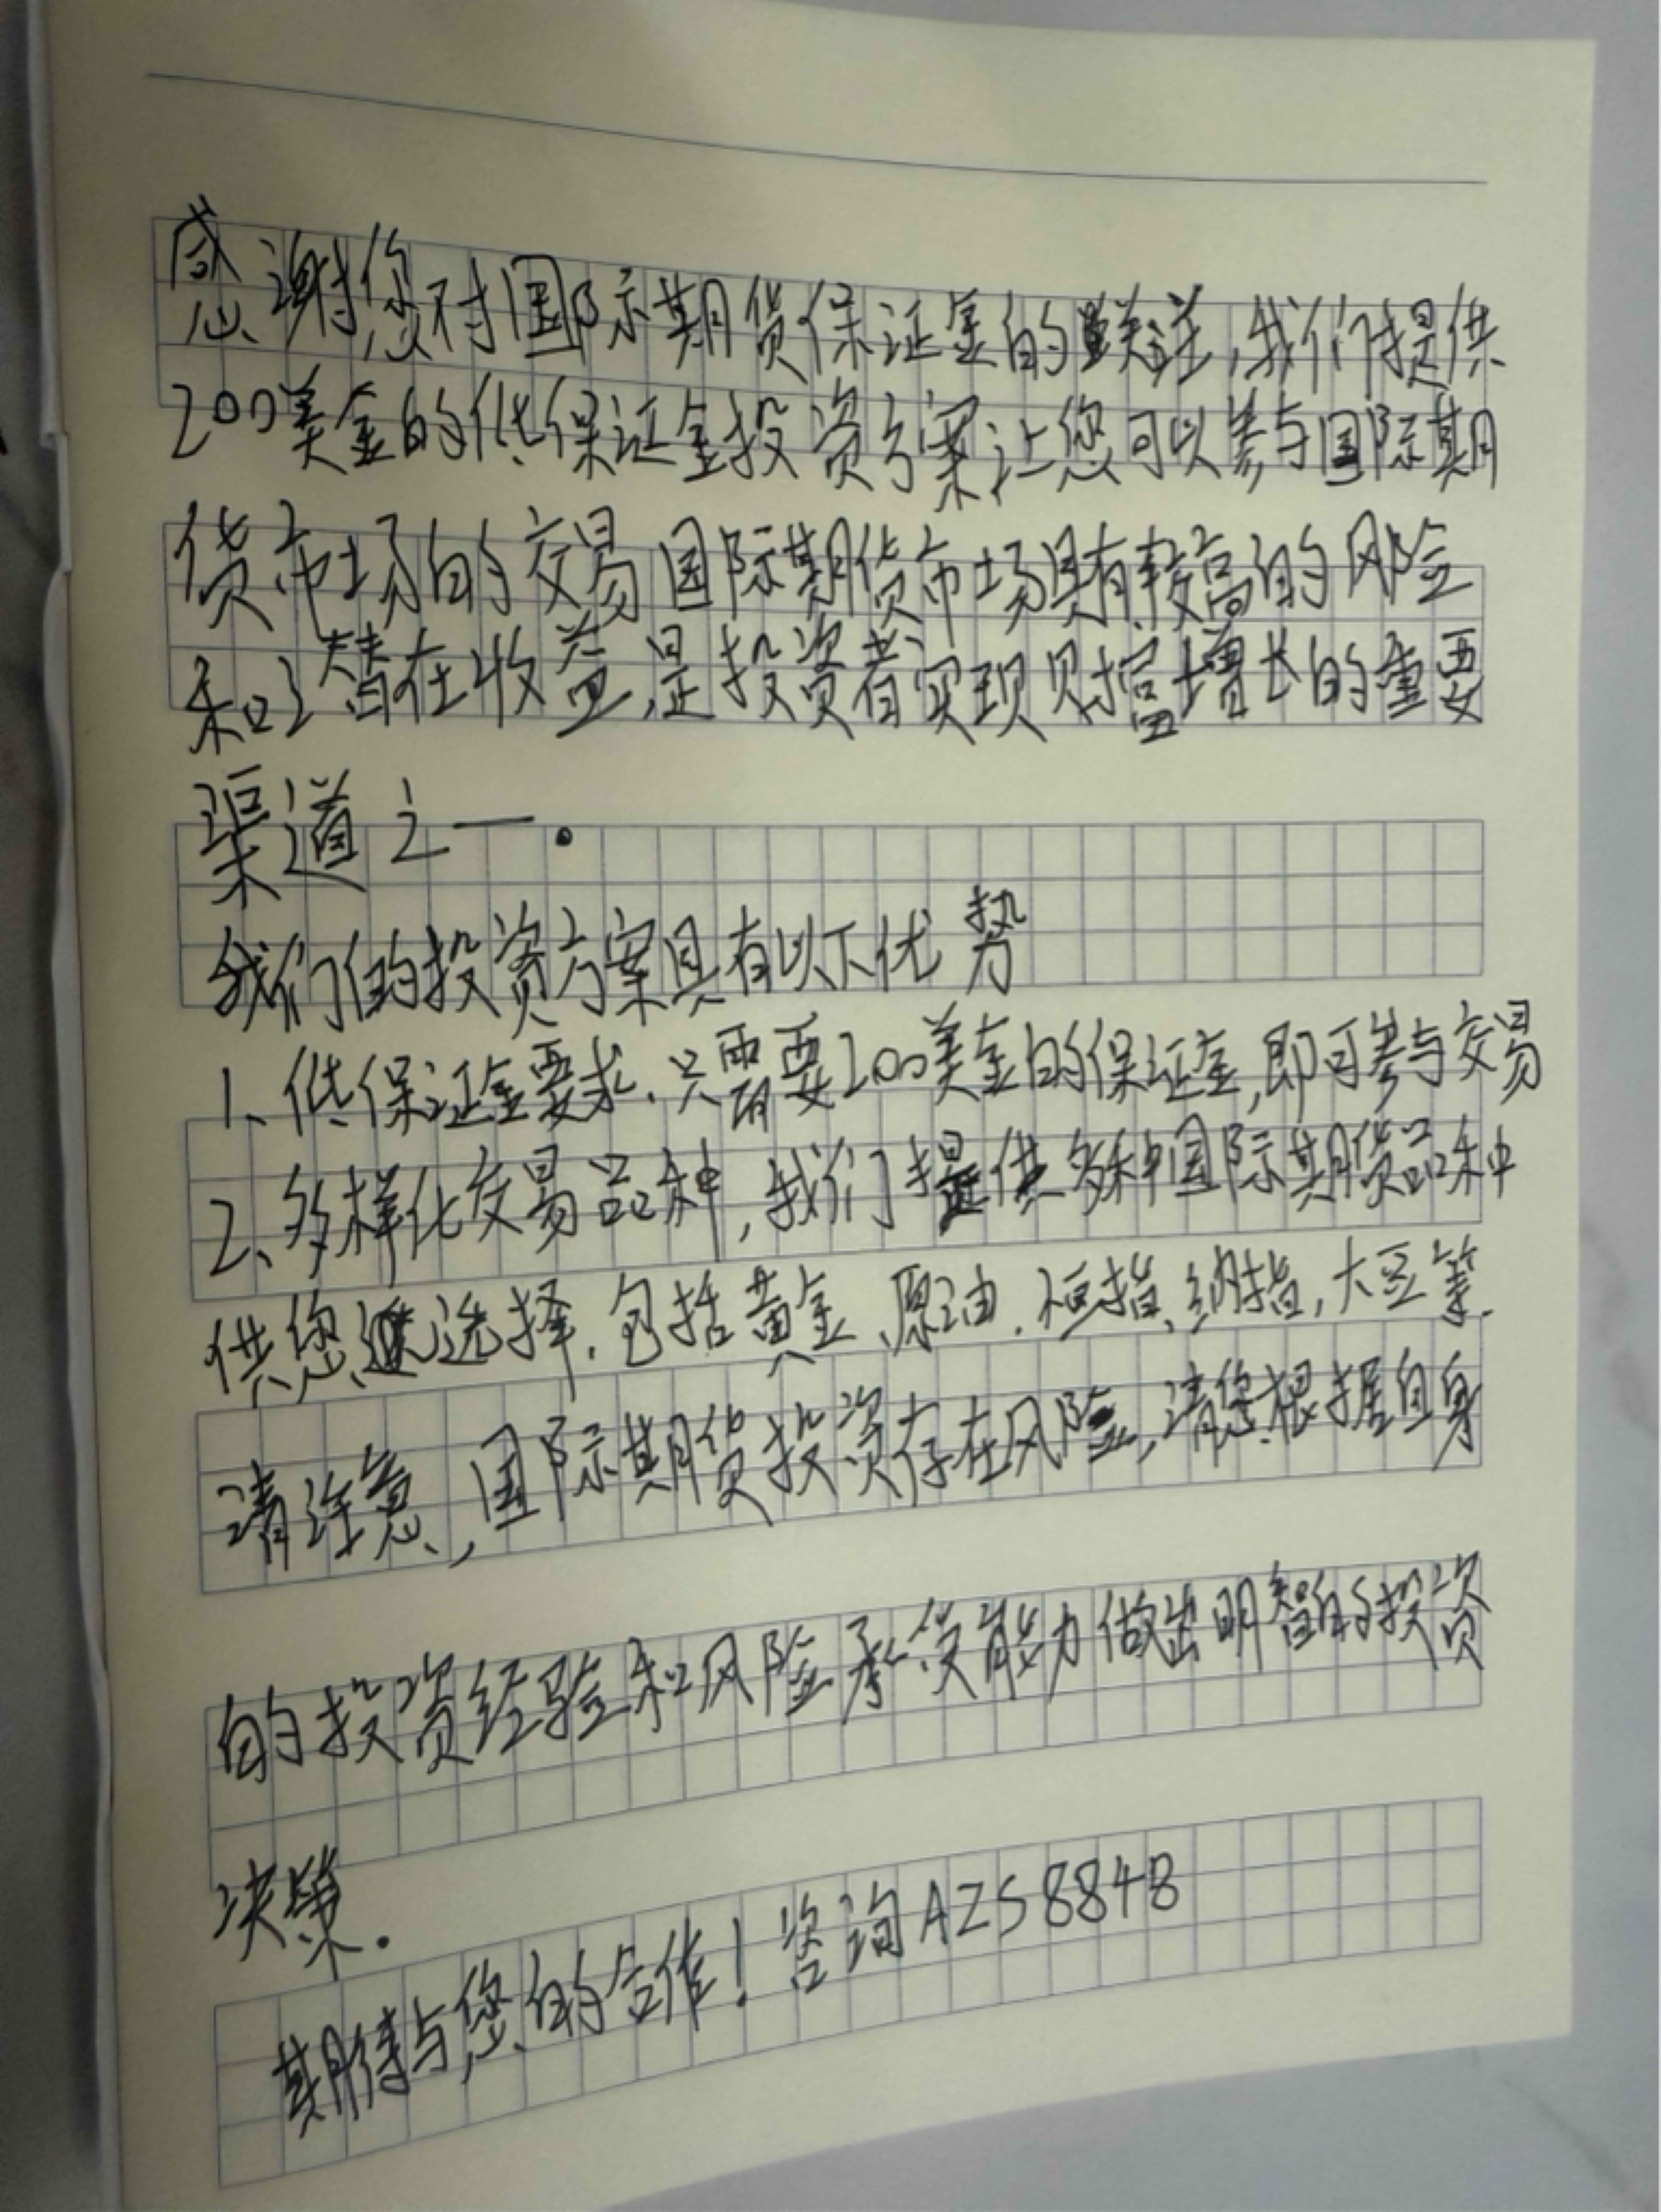 感谢您对国际期货保证金的关注,我们提供
200美金的低保证金投资方案让您可以参与国际期
货市场的交易国际期货市场具有较高的风险
和潜在收益,是投资者实现财富增长的重要
渠道之一.
我们的投资方案具有以下优势
1、低保证金要求.只需要200美金的保证金,即可参与交易
2、多样化交易品种,我们提供多种国际期货品种
供您选择.包括黄金、原油.恒指、纳指,大豆等.
请注意,国际期货投资存在风险,请您根据自身
的投资经验和风险承受能力做出明智的投资
决策.
期待与您的合作!咨询AZS8848